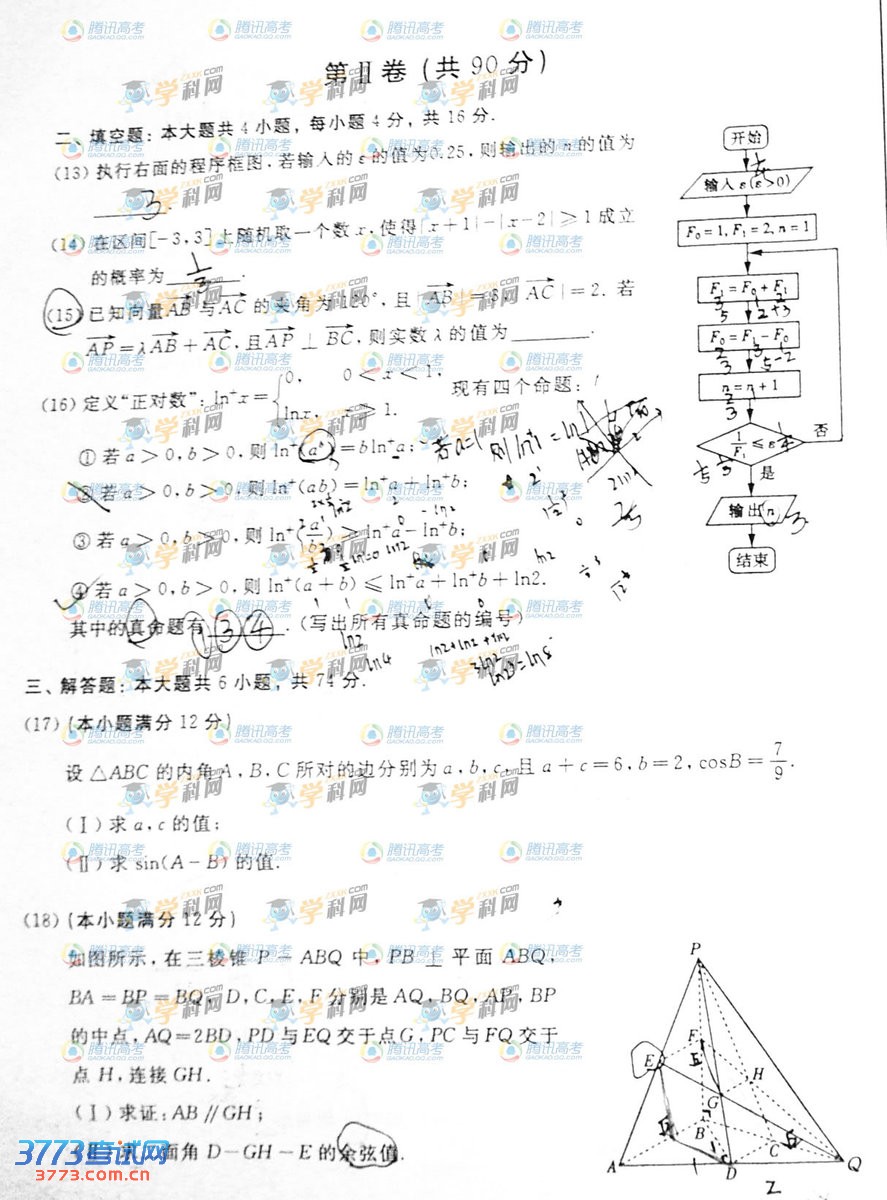 第Ⅱ卷(共90分)
二、填空题:本大题共4小题,每小题4分,共16分.
(13)执行右面的程序框图,若输入的ε的值为0.25,则输出的n的值为
3.
(14)在区间[-3,3]上随机取一个数x,使得|x+1|-|x-2|≥1成立
的概率为 1/3 .
(15)已知向量AB与AC的夹角为120°,且|AB|=3,|AC|=2.若
AP=λAB+AC,且AP⊥BC,则实数λ的值为______.
(16)定义“正对数”:ln⁺x={0, 0<x<1, lnx, x≥1. 现有四个命题:
①若a>0,b>0,则ln⁺(aᵇ)=bln⁺a;
②若a>0,b>0,则ln⁺(ab)=ln⁺a+ln⁺b;
③若a>0,b>0,则ln⁺(a/b)≥ln⁺a-ln⁺b;
④若a>0,b>0,则ln⁺(a+b)≤ln⁺a+ln⁺b+ln2.
其中的真命题有 ①③④ .(写出所有真命题的编号)
三、解答题:本大题共6小题,共74分.
(17)(本小题满分12分)
设△ABC的内角A,B,C所对的边分别为a,b,c,且a+c=6,b=2,cosB=7/9.
(Ⅰ)求a,c的值;
(Ⅱ)求sin(A-B)的值.
(18)(本小题满分12分)
如图所示,在三棱锥P-ABQ中,PB⊥平面ABQ,
BA=BP=BQ,D,C,E,F分别是AQ,BQ,AP,BP
的中点,AQ=2BD,PD与EQ交于点G,PC与FQ交于
点H,连接GH.
(Ⅰ)求证:AB∥GH;
面角D-GH-E的余弦值.
开始
输入ε(ε>0)
F₀=1,F₁=2,n=1
F₁=F₀+F₁
F₀=F₁-F₀
n=n+1
1/F₁≤ε
否
是
输出n
3
结束
P
E
F
H
G
B
C
A
D
Q
2
3773考试网
3773.com.cn
腾讯高考
GAOKAO.QQ.COM
学科网
ZXXK.com